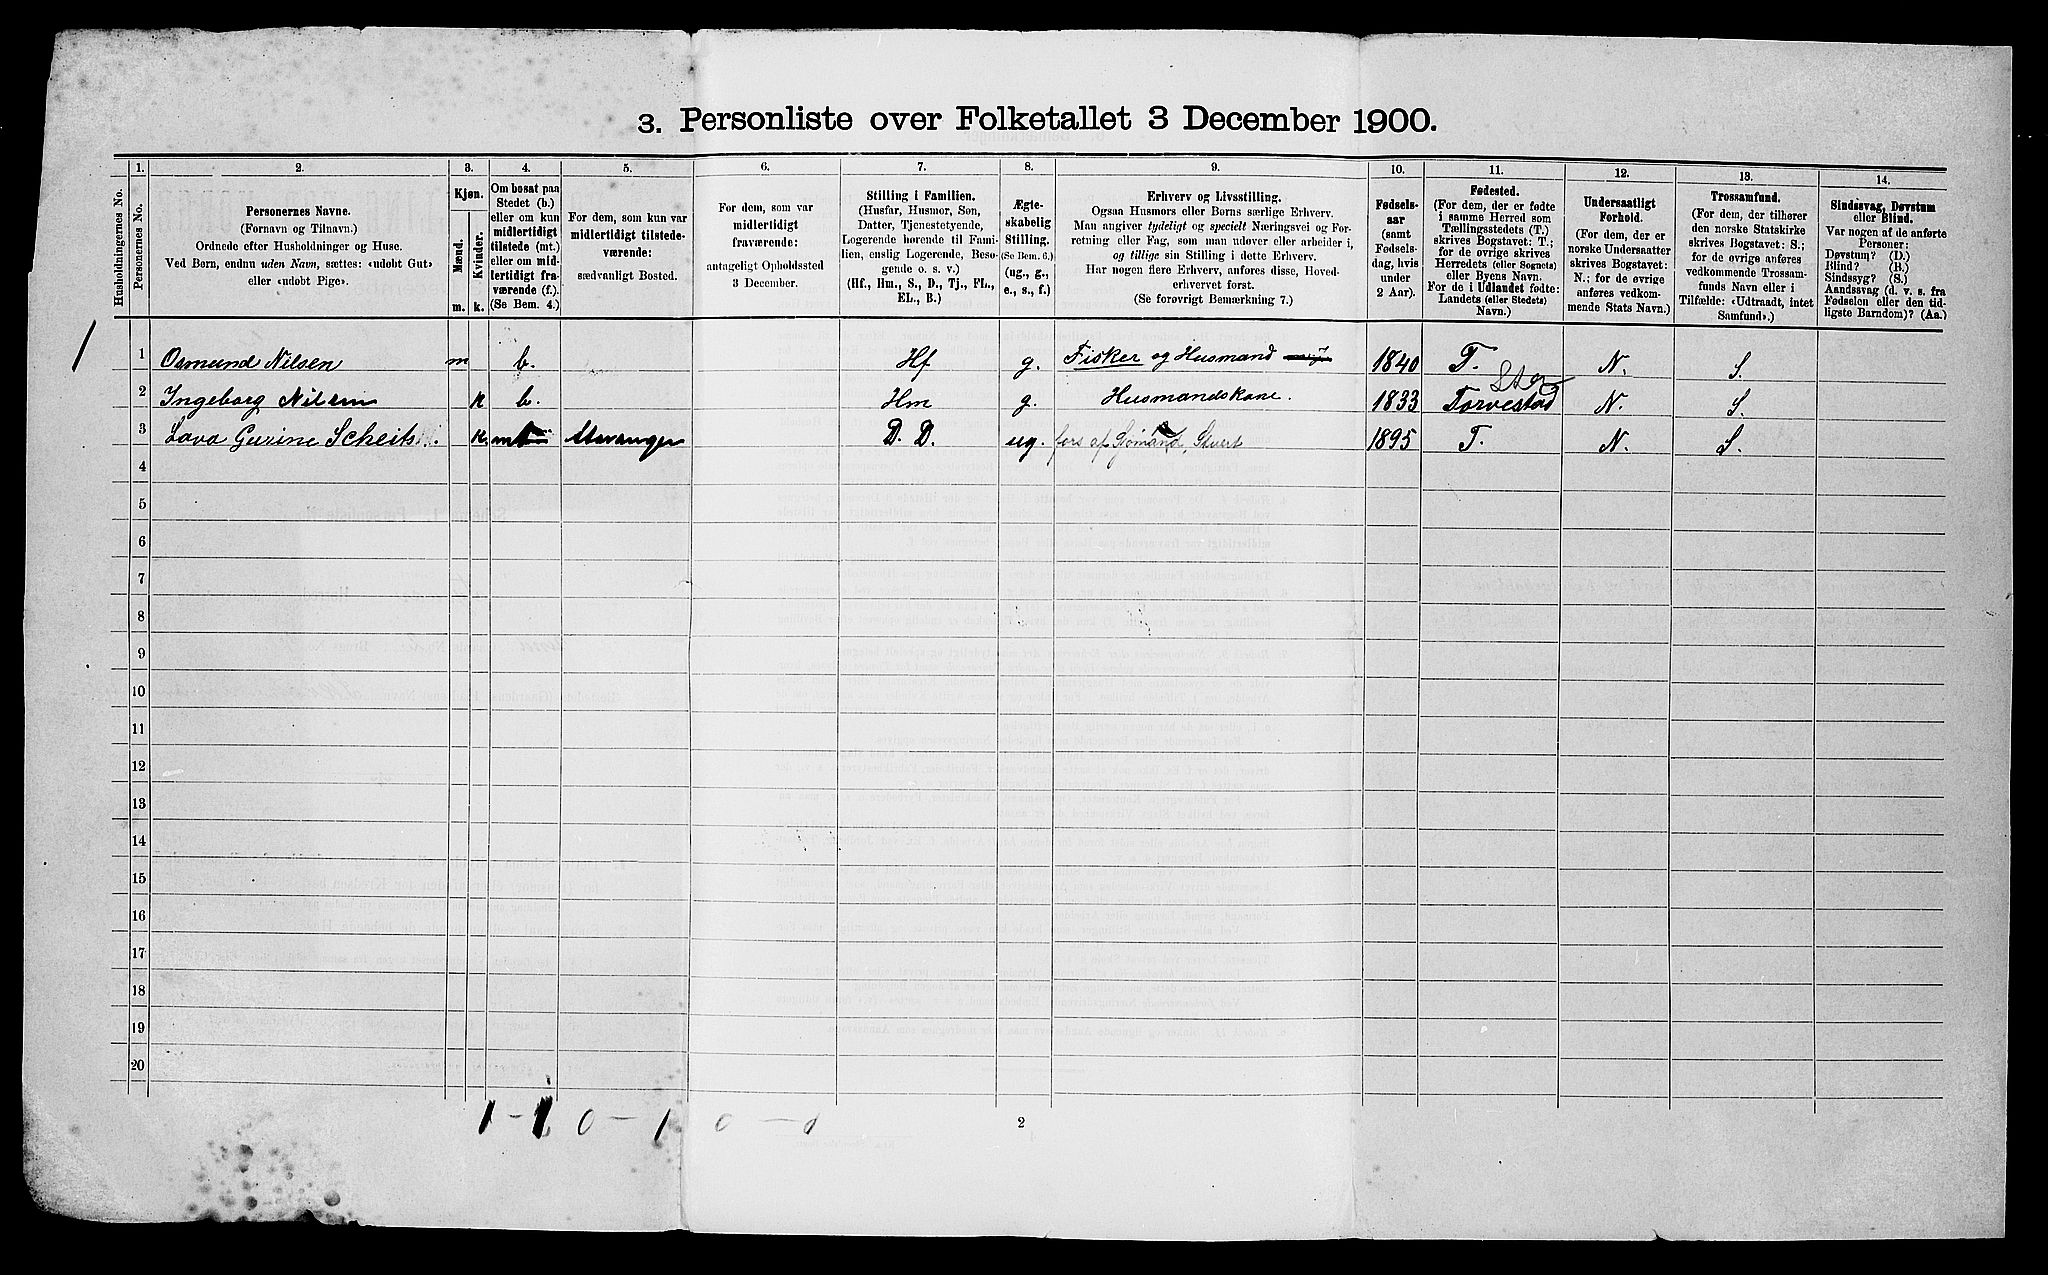 3. Personliste over Folketallet 3 December 1900.
1. 2. 3. 4. 5. 6. 7. 8. 9. 10. 11. 12. 13. 14.
Husholdningernes No.
Personernes No.
Personernes Navne.
(Fornavn og Tilnavn.)
Ordnede efter Husholdninger og Huse.
Ved Børn, endnu uden Navn, sættes: «udøbt Gut»
eller «udøbt Pige».
Kjøn.
Mænd.
Kvinder.
m. k.
Om bosat paa
Stedet (b.)
eller om kun
midlertidigt
tilstede (mt.)
eller om mid-
lertidigt fra-
værende (f.)
(Se Bem. 4.)
For dem, som kun var
midlertidigt tilstede-
værende:
sædvanligt Bosted.
For dem, som var
midlertidigt
fraværende:
antageligt Opholdssted
3 December.
Stilling i Familien.
(Husfar, Husmor, Søn,
Datter, Tjenestetyende,
Logerende hørende til Fami-
lien, enslig Logerende, Beso-
gende o. s. v.)
(Hf., Hm., S., D., Tj., FL.,
EL., B.)
Ægte-
skabelig
Stilling.
(Se Bem. 6.)
(ug., g.,
e., s., f.)
Erhverv og Livsstilling.
Ogsaa Husmors eller Børns særlige Erhverv.
Man angiver tydeligt og specielt Næringsvei og For-
retning eller Fag, som man udover eller arbeider i,
og tillige sin Stilling i dette Erhverv.
Har nogen flere Erhverv, anføres disse, Hoved-
erhvervet først.
(Se forøvrigt Bemærkning 7.)
Fødsels-
aar
(samt
Fødsels-
dag, hvis
under
2 Aar).
Fødested.
(For dem, der er fødte
i samme Herred som
Tællingsstedets (T.)
skrives Bogstavet: T.;
for de øvrige skrives
Herredets (eller Sognets)
eller Byens Navn.
For de i Udlandet fødte:
Landets (eller Stedets)
Navn.)
Undersaatligt
Forhold.
(For dem, der er
norske Undersaatter
skrives Bogstavet:
N.; for de øvrige
anføres vedkom-
mende Stats Navn.)
Trossamfund.
(For dem, der tilhører
den norske Statskirke
skrives Bogstavet: S.;
for de øvrige anføres
vedkommende Trossam-
funds Navn eller i
Tilfælde: «Udtraadt, intet
Samfund».)
Sindssvag, Døvstum
eller Blind.
Var nogen af de anførte
Personer:
Døvstum? (D.)
Blind? (B.)
Sindssyg? (S.)
Aandssvag (d. v. s. fra
Fødselen eller den tid-
ligste Barndom)? (Aa.)
1 1 Osmund Nilsen m b. Hf g. Fisker og Husmand 1840 T. N. S.
2 Ingeborg Nilsen k b. Hm g. Husmandskone. 1833 Torvestad Stg N. S.
3 Lava Gurine Scheits k. mt Stavanger D. D. ug. fors af Sjømand, Stuert 1895 T. N. S.
4
5
6
7
8
9
10
11
12
13
14
15
16
17
18
19
20
1 - 1 0 - 1 0 - 1
2